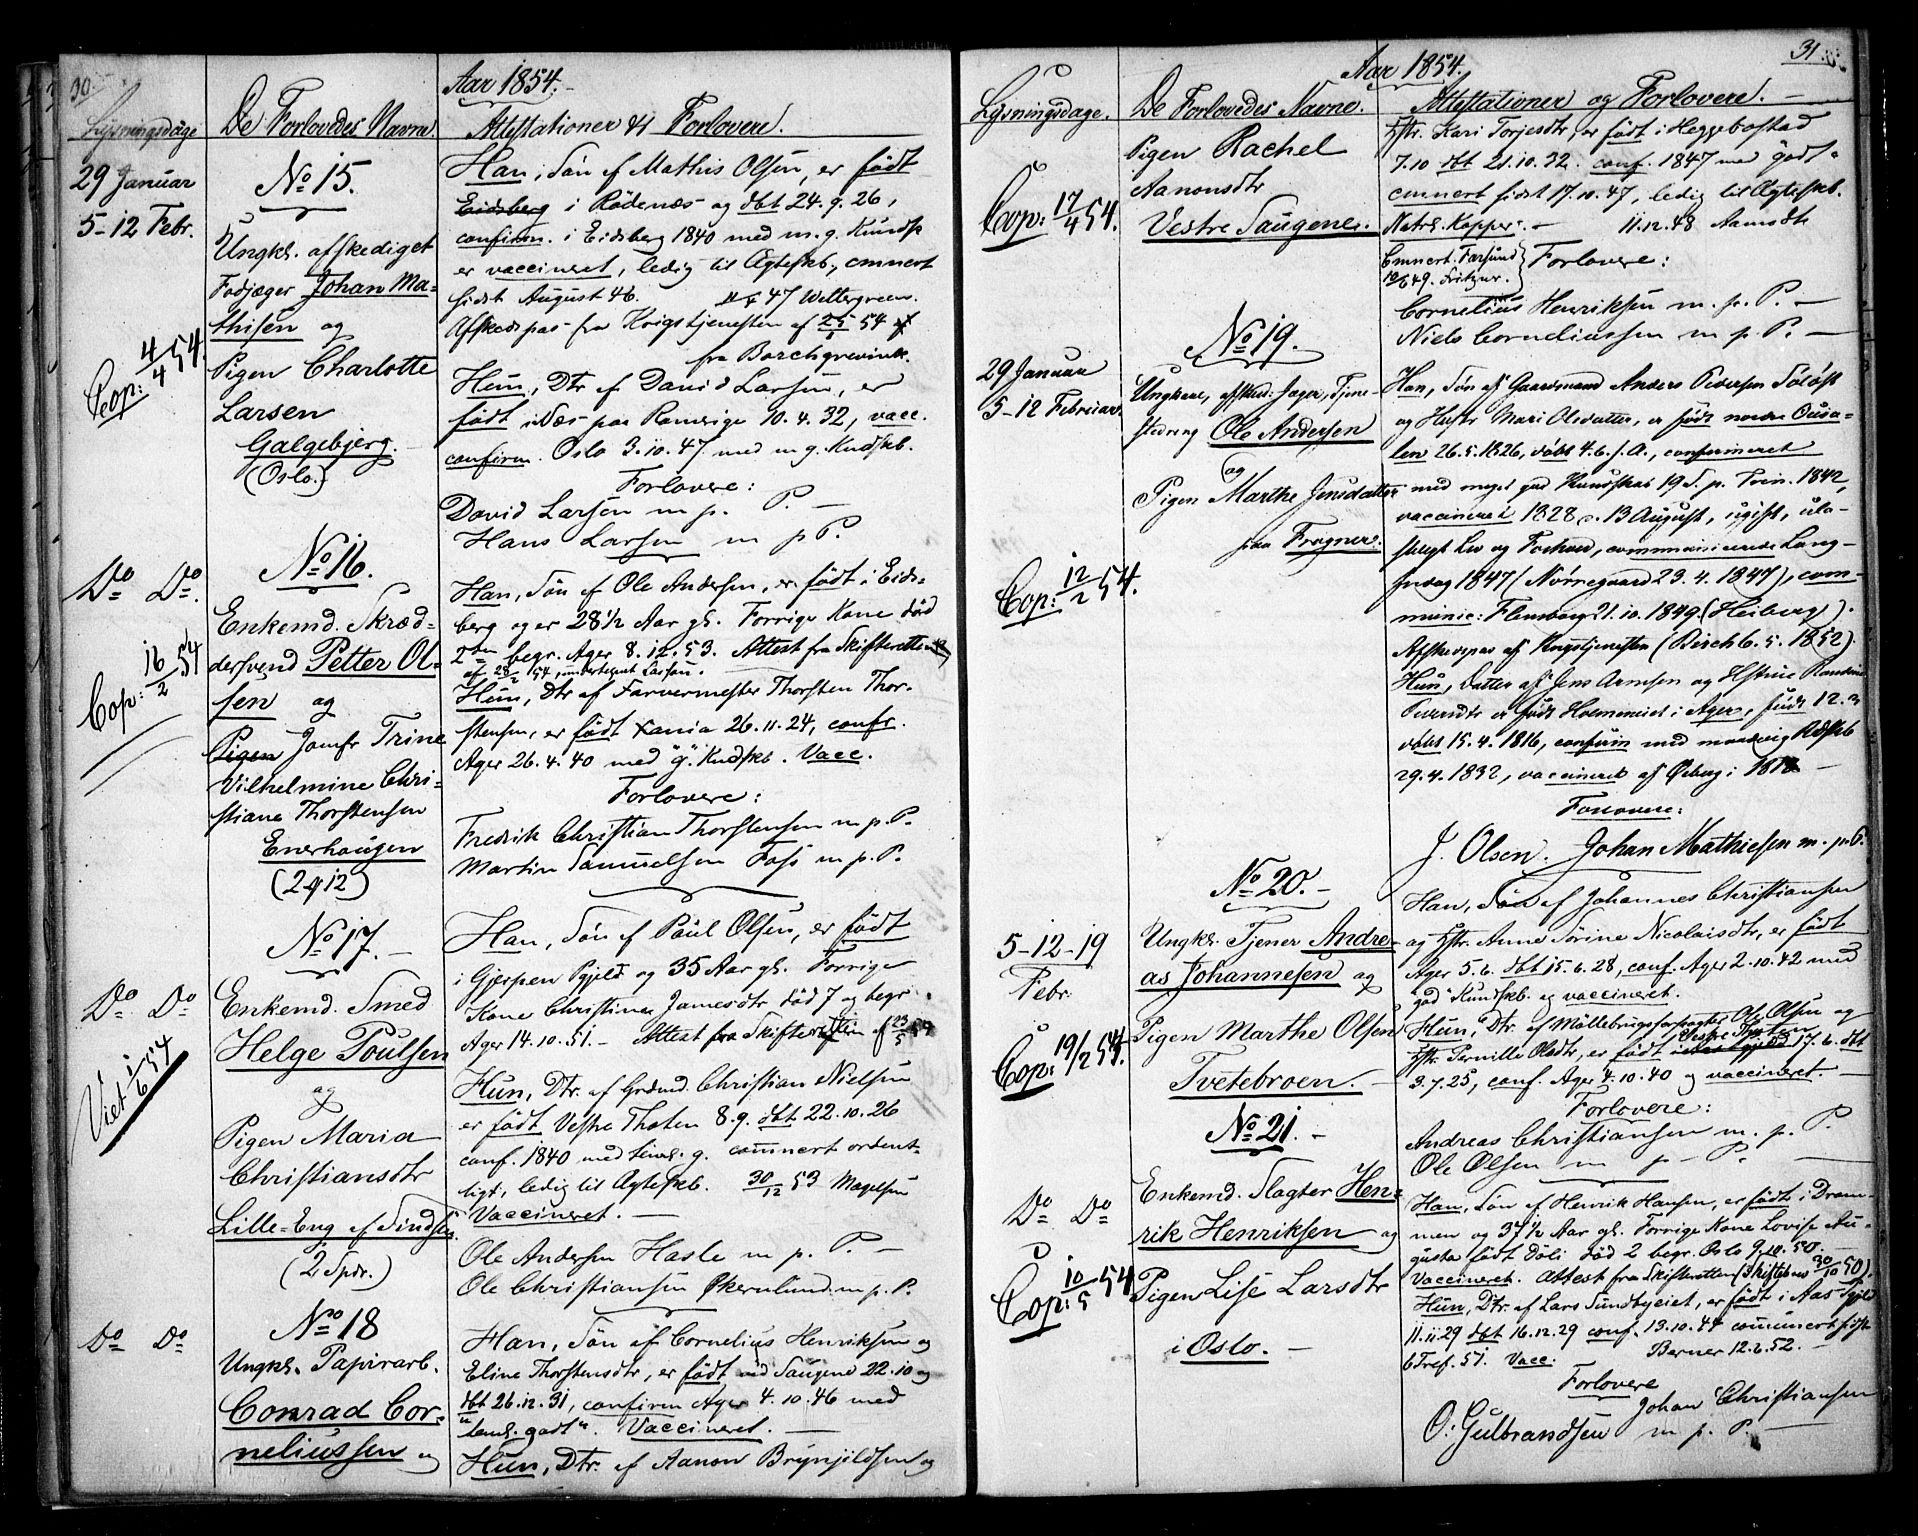 30.
Aar 1854.
Lysningsdage
De Forlovedes Navne.
Attestationer & Forlovere.
29 Januar
5-12 Febr.
No 15.
Ungkl. afskediget
Fodjæger Johan Ma-
thisen og
Pigen Charlotte
Larsen
Galgebjerg.
(Oslo.)
Cop: 4/4 54.
Han, Søn af Mathis Olsen, er født
Eidsberg i Rødenæs og dbt 24.9.26,
confirm. i Eidsberg 1840 med m. g. Kundsk
er vaccineret, ledig til Ægteskb., cmnert
sidst August 46. 47 Weltergreen.
Afskedspas fra Krigstjenesten af 25/1 54
fra Borchgrevink.
Hun, Dtr af David Larsen, er
født i Næs paa Romerige 10.4.32, vacc.
confirm. Oslo 3.10.47 med m g. Kndskb.
Forlovere:
David Larsen m p. P. —
Hans Larsen m p P.
Do Do.
No 16.
Enkemd. Skræd-
dersvend Petter Ol-
sen og
Pigen Jomfr Trine
Vilhelmine Chri-
stiane Thorstensen
Enerhaugen
(2412)
Cop: 16/2 54
Han, Søn af Ole Andersen, er født i Eids-
berg og er 28 1/2 Aar gl. Forrige Kone død
2den begr. Ager 8.12.53. Attest fra Skifteretten
af 28/2 54, undertegnet Lassen.
Hun, Dtr af Farvermester Thorsten Thor-
stensen, er født Xania 26.11.24, confr.
Ager 26.4.40 med "g." Kndskb. Vacc.
Forlovere:
Fredrik Christian Thorstensen m p. P.
Martin Samuelsen Foss m. p. P.
Do Do
No 17. —
Enkemd. Smed
Helge Poulsen
og
Pigen Maria
Christiansdtr
Lille-Eng af Sindsen
(2 Spdr.)
Viet 1/6 54
Han, Søn af Poul Olsen, er født
i Gjerpen Pgjeld og 35 Aar gl. Forrige
Kone Christine Jamesdtr død 7 og begr.
Ager 14.10.51. — Attest fra Skifteretten af 23/5 54
Hun, Dtr. af Grdmd. Christian Nielsen
er født Vestre Thoten 8.9. dbt. 22.10.26
conf. 1840 med g. commert ordent-
ligt, ledig til Ægteskb. 30/12 53 Magelsen
Vaccineret. —
Ole Andersen Hasle m p. P. —
Ole Christiansen Økernlund m. p. P.
Do Do
No 18
Ungkl. Papirarb.
Conrad Cor-
neliussen og
Han, Søn af Cornelius Henriksen og
Eline Thorstensdtr, er født ved Saugene 22.10 og
dbt 26.12.31, confirm Ager 4.10.46 med
"temel. godt". Vaccineret. —
Hun, Dtr. af Aanon Brynjildsen og
31.
Aar 1854.
Lysningsdage.
De Forlovedes Navne.
Attestationer og Forlovere. —
Cop: 17/4 54.
Pigen Rachel
Aanonsdtr
Vestre Saugene.
Hstr. Kari Torjesdtr, er født i Heggebostad
7.10 dbt 21.10.32. conf. 1847 med godt
cmnert sidst 17.10.47, ledig til Ægteskb.
Natrl. Kopper. — 11.12.48 Aamodt
Cmnert. Farsund
649. Fritzner.
Forlovere:
Cornelius Henriksen m. p. P. —
Niels Corneliussen m p. P. —
29 Januar
5-12 Februar.
No 19.
Ungkarl, afsked: Jæger, Tjene-
stedreng Ole Andersen
og
Pigen Marthe Jensdatter
paa Frogner.
Cop: 12/2 54.
Han, Søn af Gaardmand Anders Pedersen
og Hustr Mari Olsdatter, er født nordre
26.5.1826, døbt 4.6. s. A., confirmeret
med meget god Kundskab 19 S. p. Trin. 1842,
vaccineret 1828 13 August, ugift, ulo-
vligt Lev og Forhold, communicerede Lang-
fredag 1847 (Nørregaard 29.4.1847), com-
munic: Flensborg 21.10.1849 (Heiberg).
Afskedspas af Krigstjenesten (Besch 6.5.1852)
Hun, Datter af Jens Arnesen og Hstrue
Pedersdtr er født i Ager, født 12.3
døbt 15.4.1816, confirm med maadelig Kdskb
29.4.1832, vaccineret af Øeberg i 1818 —
Forlovere:
J. Olsen. Johan Mathiesen m. p. P.
5-12-19
Febr.
No 20. —
Ungkl. Tjener Andre-
as Johannesen og
Pigen Marthe Olsen
Tvetebroen. —
Cop: 19/2 54.
Han, Søn af Johannes Christiansen
og Hstr. Anne Sørine Nicolaisdtr, er født
Ager 5.6. dbt 15.6.28, conf. Ager 2.10.42 med
"god" Kundskb. og vaccineret.
Hun, Dtr. af Møllebrugsforvalter Ole Olsen og
Hstr. Pernille Olsdtr, er født Vestre Thoten 17.6. dbt
3.7.25, conf. Ager 4.10.40 og vaccineret. —
Forlovere:
Andreas Christiansen m. p. P.
Ole Olsen m p — P. —
Do Do
No 21. —
Enkemd. Slagter Hen-
rik Henriksen og
Pigen Lise Larsdtr
i Oslo. —
Cop: 10/5 54
Han, Søn af Henrik Hansen, er født i Dram-
men og 37 1/2 Aar gl. Forrige Kone Lovise Au-
gusta født Døli død 2 begr. Oslo 9.10.50.
Vaccineret. Attest fra Skifteretten (Skiftebrev 30/10 50).
Hun, Dtr. af Lars Sundbyeiet, er født i Aas Pgjeld
11.11.29 dbt 16.12.29 conf. 13.10.44 communert sidst
6 Tref. 51. Vacc: Berner 12.6.52. —
Forlovere
Johan Christiansen
O. Gulbrandsen m. p. P. —